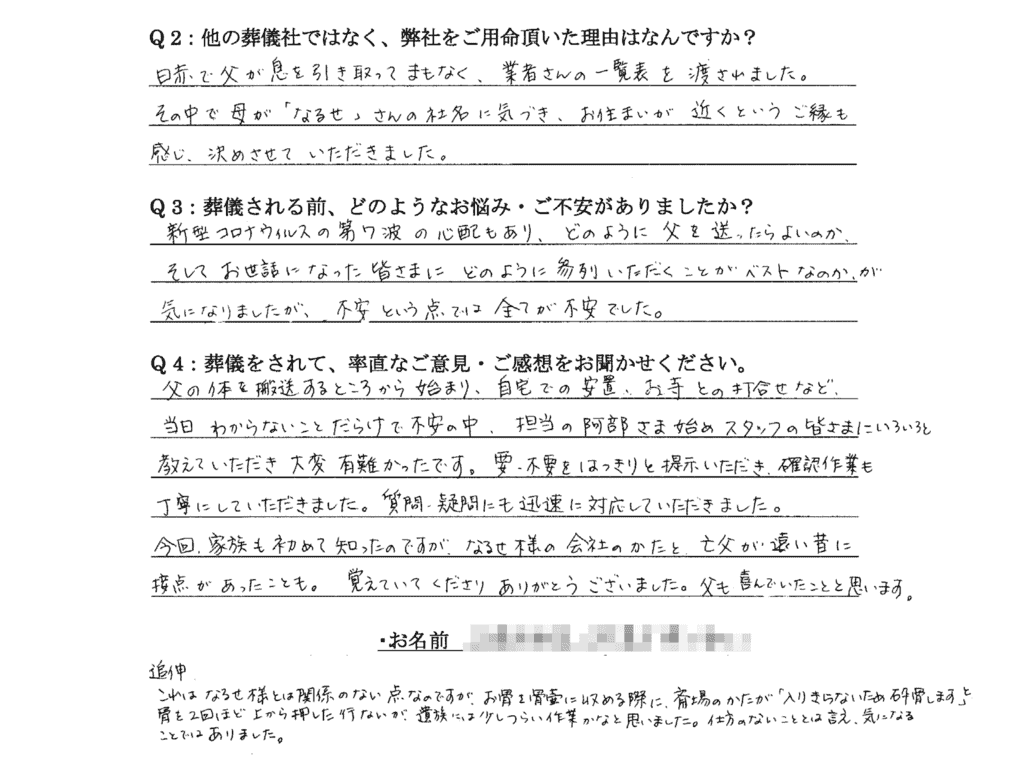 Q2:他の葬儀社ではなく、弊社をご用命頂いた理由はなんですか?
日赤で父が息を引き取ってまもなく、業者さんの一覧表を渡されました。
その中で母が「なるせ」さんの社名に気づき、お住まいが近くというご縁も
感じ、決めさせていただきました。
Q3:葬儀される前、どのようなお悩み・ご不安がありましたか?
新型コロナウィルスの第7波の心配もあり、どのように父を送ったらよいのか、
そしてお世話になった皆さまにどのように参列いただくことがベストなのか、が
気になりましたが、不安という点では全てが不安でした。
Q4:葬儀をされて、率直なご意見・ご感想をお聞かせください。
父の体を搬送するところから始まり、自宅での安置、お寺との打合せなど、
当日わからないことだらけで不安の中、担当の阿部さま始めスタッフの皆さまにいろいろと
教えていただき大変有難かったです。要・不要をはっきりと提示いただき、確認作業も
丁寧にしていただきました。質問・疑問にも迅速に対応していただきました。
今回、家族も初めて知ったのですが、なるせ様の会社のかたと、亡父が遠い昔に
接点があったことも。覚えていてくださりありがとうございました。父も喜んでいたことと思います。
・お名前
追伸
これはなるせ様とは関係のない点なのですが、お骨を骨壷に収める際に、斎場のかたが「入りきらないため砕骨します」と
骨を2回ほど上から押した行ないが、遺族には少しつらい作業かなと思いました。仕方のないこととは言え、気になる
ことではありました。